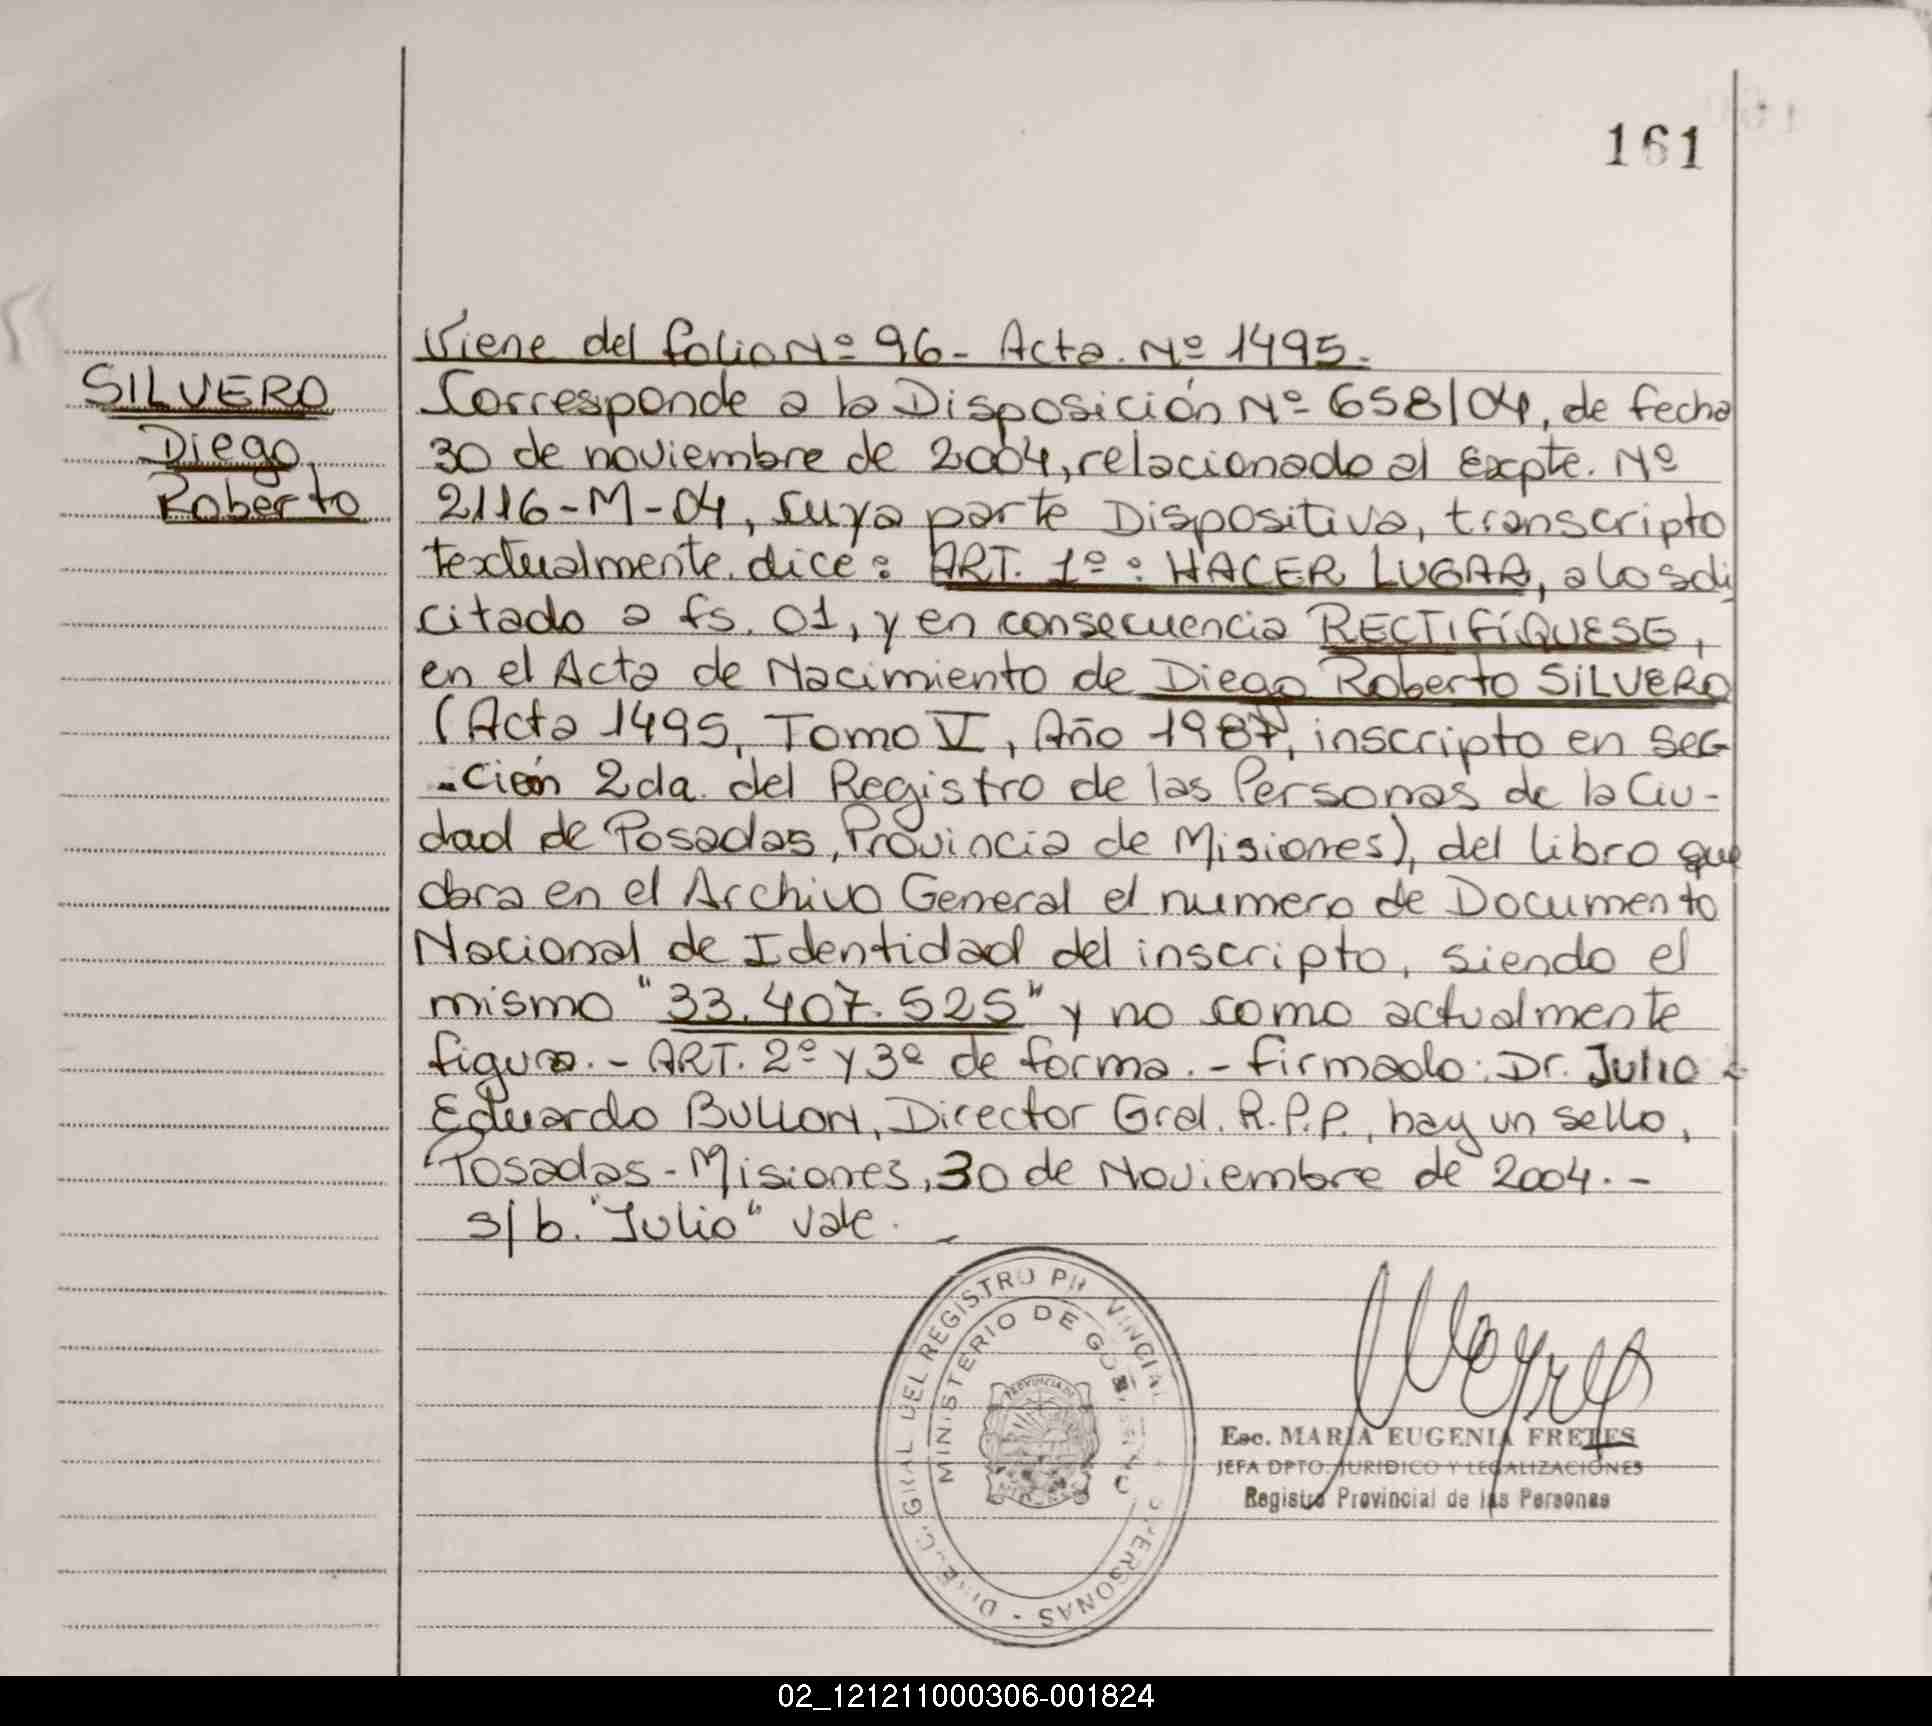 161
Viene del folio Nº 96 - Acta. Nº 1495.
SILVERO
Diego
Roberto
Corresponde a la Disposición Nº 658/04, de fecha
30 de noviembre de 2004, relacionado al Expte. Nº
2116-M-04, cuya parte Dispositiva, transcripto
textualmente dice: ART. 1º: HACER LUGAR, a lo soli
citado a fs. 01, y en consecuencia RECTIFÍQUESE,
en el Acta de Nacimiento de Diego Roberto SILVERO
(Acta 1495, Tomo V, Año 1987, inscripto en sec
-ción 2da. del Registro de las Personas de la Ciu-
dad de Posadas, Provincia de Misiones), del libro que
obra en el Archivo General el numero de Documento
Nacional de Identidad del inscripto, siendo el
mismo "33.407.525" y no como actualmente
figura.- ART. 2º y 3º de forma.- firmado: Dr. Julio
Eduardo BULLON, Director Gral. R.P.P., hay un sello,
Posadas-Misiones, 30 de Noviembre de 2004.-
s/b. "Julio" vale.
DIREC. GRAL DEL REGISTRO PROVINCIAL PERSONAS
MINISTERIO DE GOBIERNO
PROVINCIA DE
Esc. MARIA EUGENIA FRETES
JEFA DPTO. JURIDICO Y LEGALIZACIONES
Registro Provincial de las Personas
02_121211000306-001824